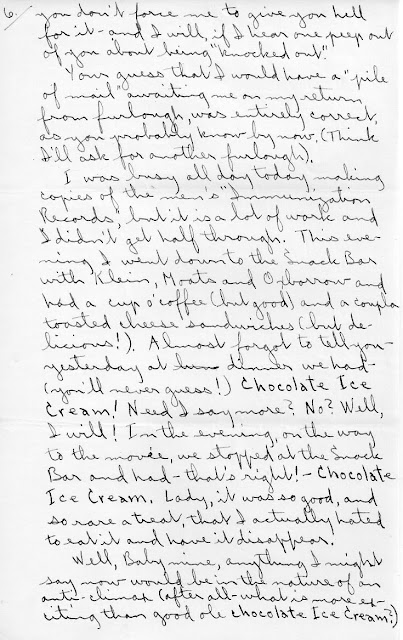 6.
you don't force me to give you hell
for it - and I will, if I hear one peep out
of you about being "knocked out".
Your guess that I would have a "pile
of mail" awaiting me on my return
from furlough, was entirely correct,
as you probably know by now. (Think
I'll ask for another furlough).
I was busy all day today making
copies of the men's "Immunization
Records", but it is a lot of work and
I didn't get half through. This eve-
ning I went down to the Snack Bar
with Klein, Moats and Ozbarrow and
had a cup o' coffee (but good) and a coupla
toasted cheese sandwiches (but de-
licious!). Almost forgot to tell you -
yesterday at dinner we had -
(you'll never guess!) Chocolate Ice
Cream! Need I say more? No? Well,
I will! In the evening, on the way
to the movie, we stopped at the Snack
Bar and had - that's right! - Chocolate
Ice Cream. Lady, it was so good, and
so rare a treat, that I actually hated
to eat it and have it disappear.
Well, Baby mine, anything I might
say now would be in the nature of an
anti-climax (after all - what is more ex-
citing than good ole chocolate Ice Cream?)